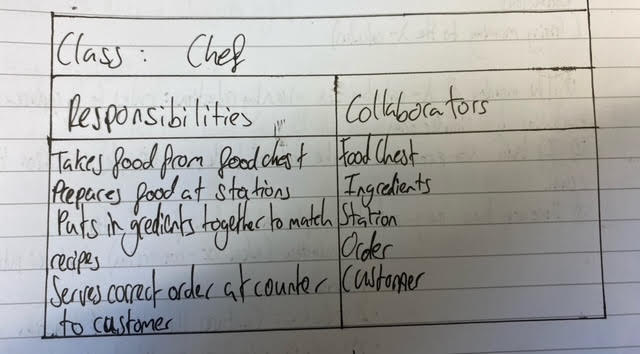 Class: Chef
Responsibilities
Collaborators
Takes food from foodchest
Prepares food at stations
Puts in gredients together to match
recipes
Serves correct order at counter
to customer
Food Chest
Ingredients
Station
Order
Customer